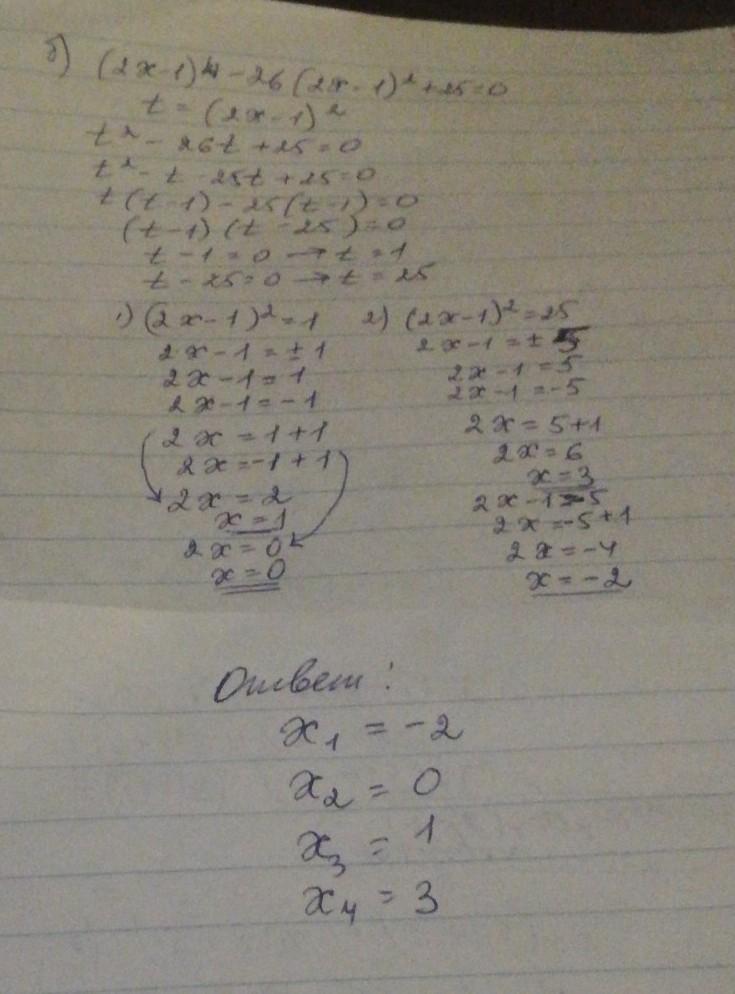 б) (2x-1)⁴ - 26(2x-1)² + 25 = 0
t = (2x-1)²
t² - 26t + 25 = 0
t² - t - 25t + 25 = 0
t(t-1) - 25(t-1) = 0
(t-1)(t-25) = 0
t - 1 = 0 → t = 1
t - 25 = 0 → t = 25
1) (2x-1)² = 1
2x-1 = ±1
2x-1 = 1
2x-1 = -1
2x = 1+1
2x = -1+1
2x = 2
x = 1
2x = 0
x = 0
2) (2x-1)² = 25
2x-1 = ±5
2x-1 = 5
2x-1 = -5
2x = 5+1
2x = 6
x = 3
2x-1 = -5
2x = -5+1
2x = -4
x = -2
Ответ:
x₁ = -2
x₂ = 0
x₃ = 1
x₄ = 3